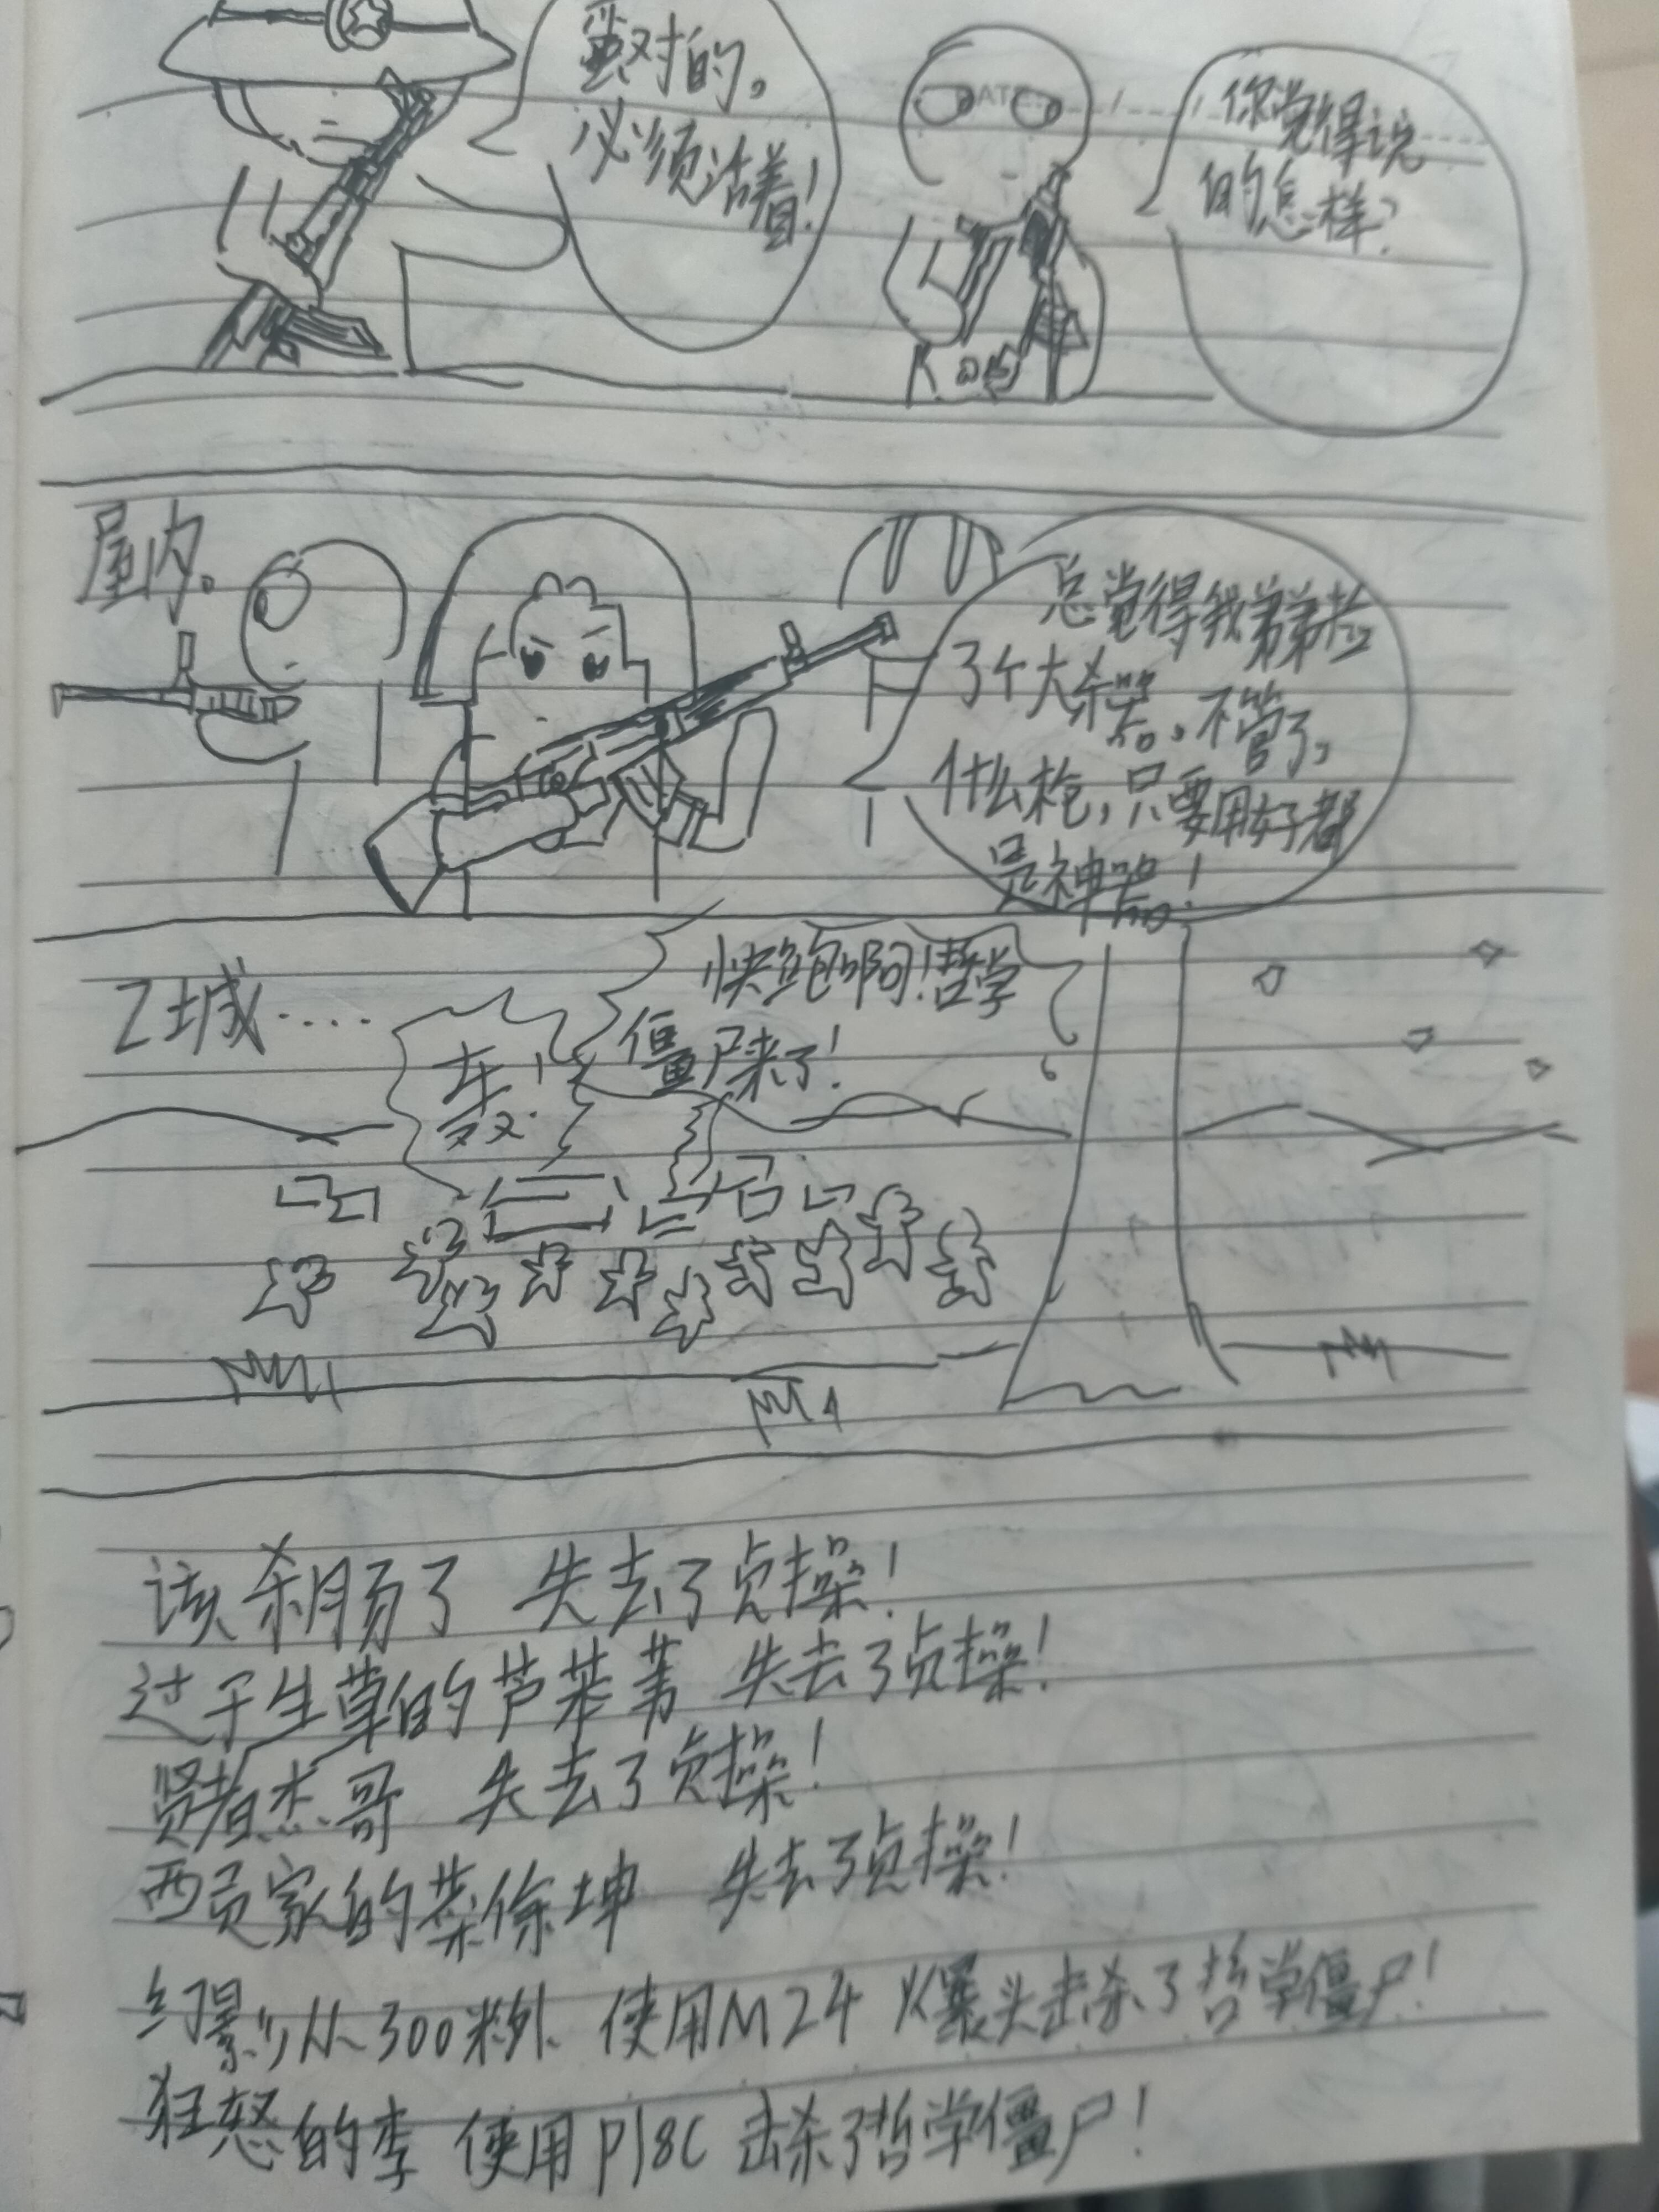 蛮对的。
必须沽着!
DATE
你觉得说
的怎样?
屋内。
总觉得我弟弟捡
了个大杀器,不管了,
什么枪,只要用好都
是神器!
Z城....
快跑啊!哲学
僵尸来了!
轰!
该杀月易了 失去了贞操!
过于生草的芦苯苇 失去了贞操!
贤者杰哥 失去了贞操!
西贡家的菜徐坤 失去了贞操!
幻影少从300米外 使用M24 爆头击杀了哲学僵尸!
狂怒的李 使用P18C 击杀了哲学僵尸!